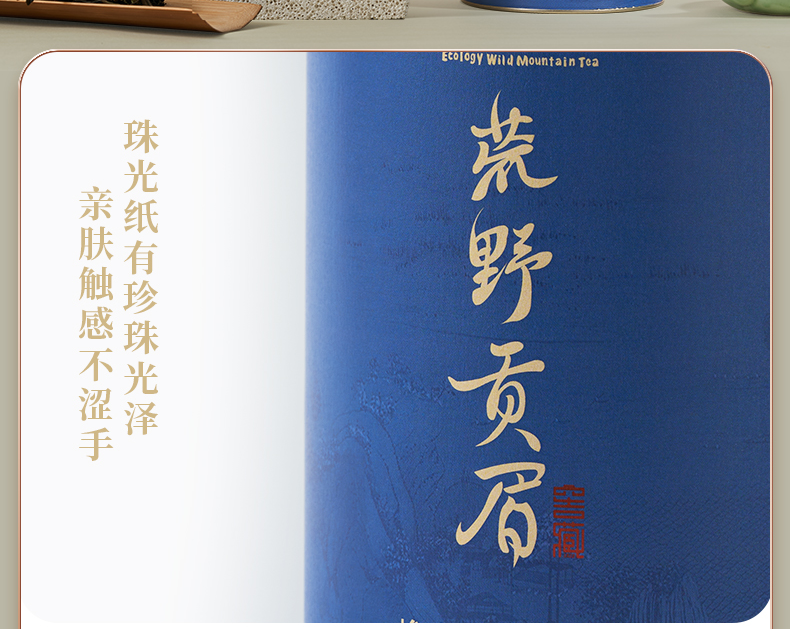 Ecology Wild Mountain Tea
荒野贡眉
珠光纸有珍珠光泽
亲肤触感不涩手